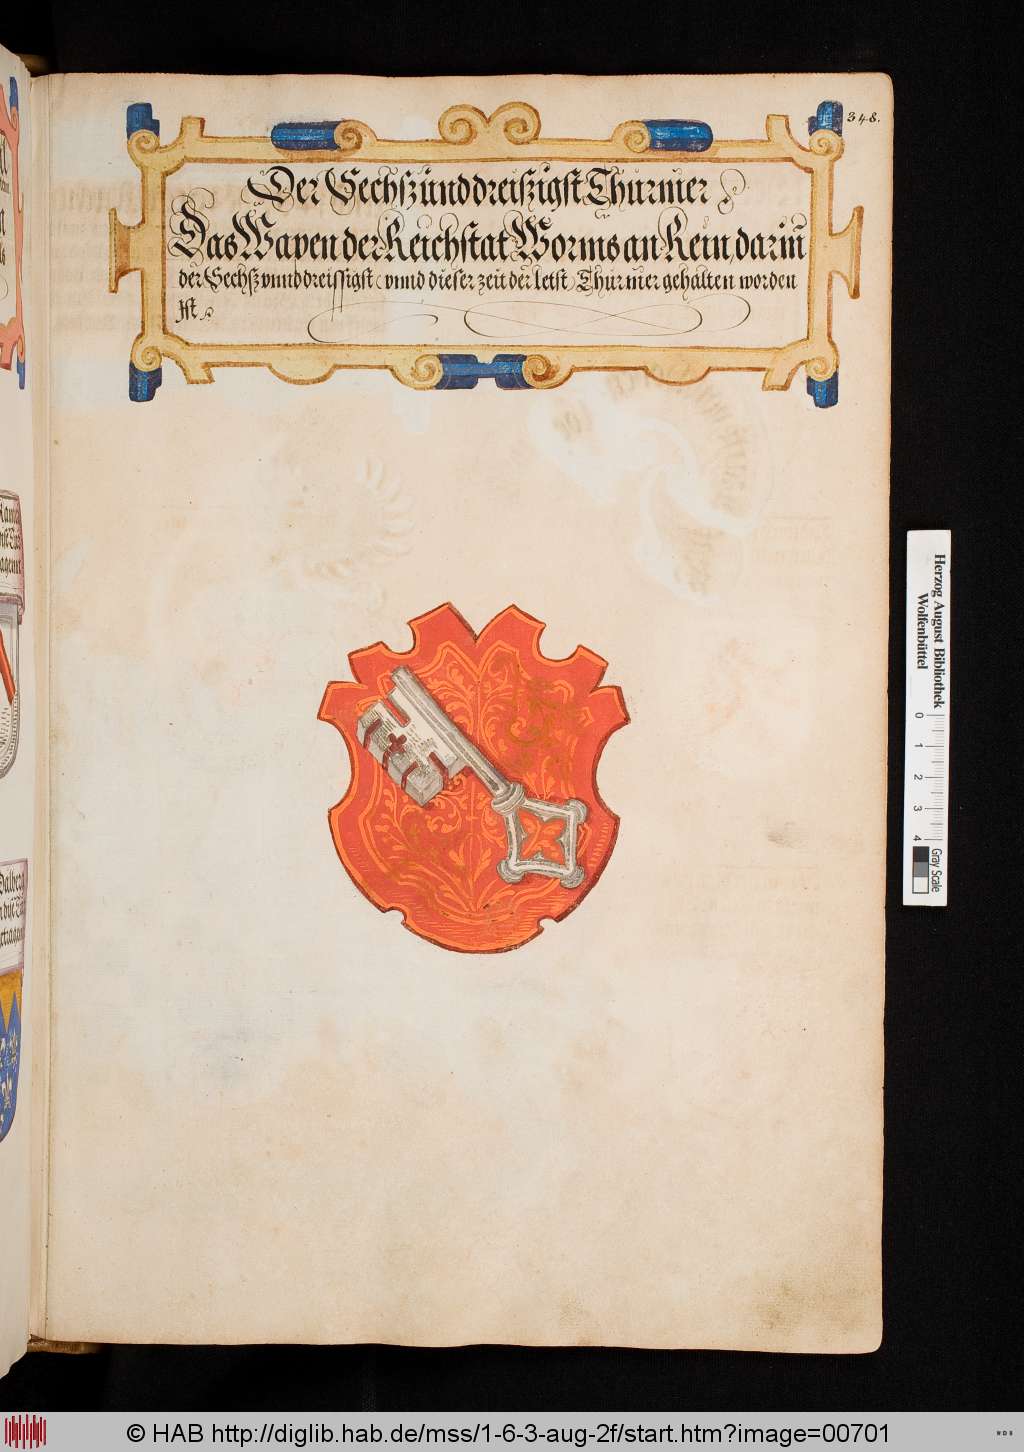 348.
Der Sechßunddreißigst Thurnier
Das Wapen der Reichstat Worms an Rein, darinn
der Sechßunnddreissigst (unnd dieser zeit der letst) Thurnier gehalten worden
Ist.
Herzog August Bibliothek
Wolfenbüttel
0 1 2 3 4
Gray Scale
© HAB http://diglib.hab.de/mss/1-6-3-aug-2f/start.htm?image=00701